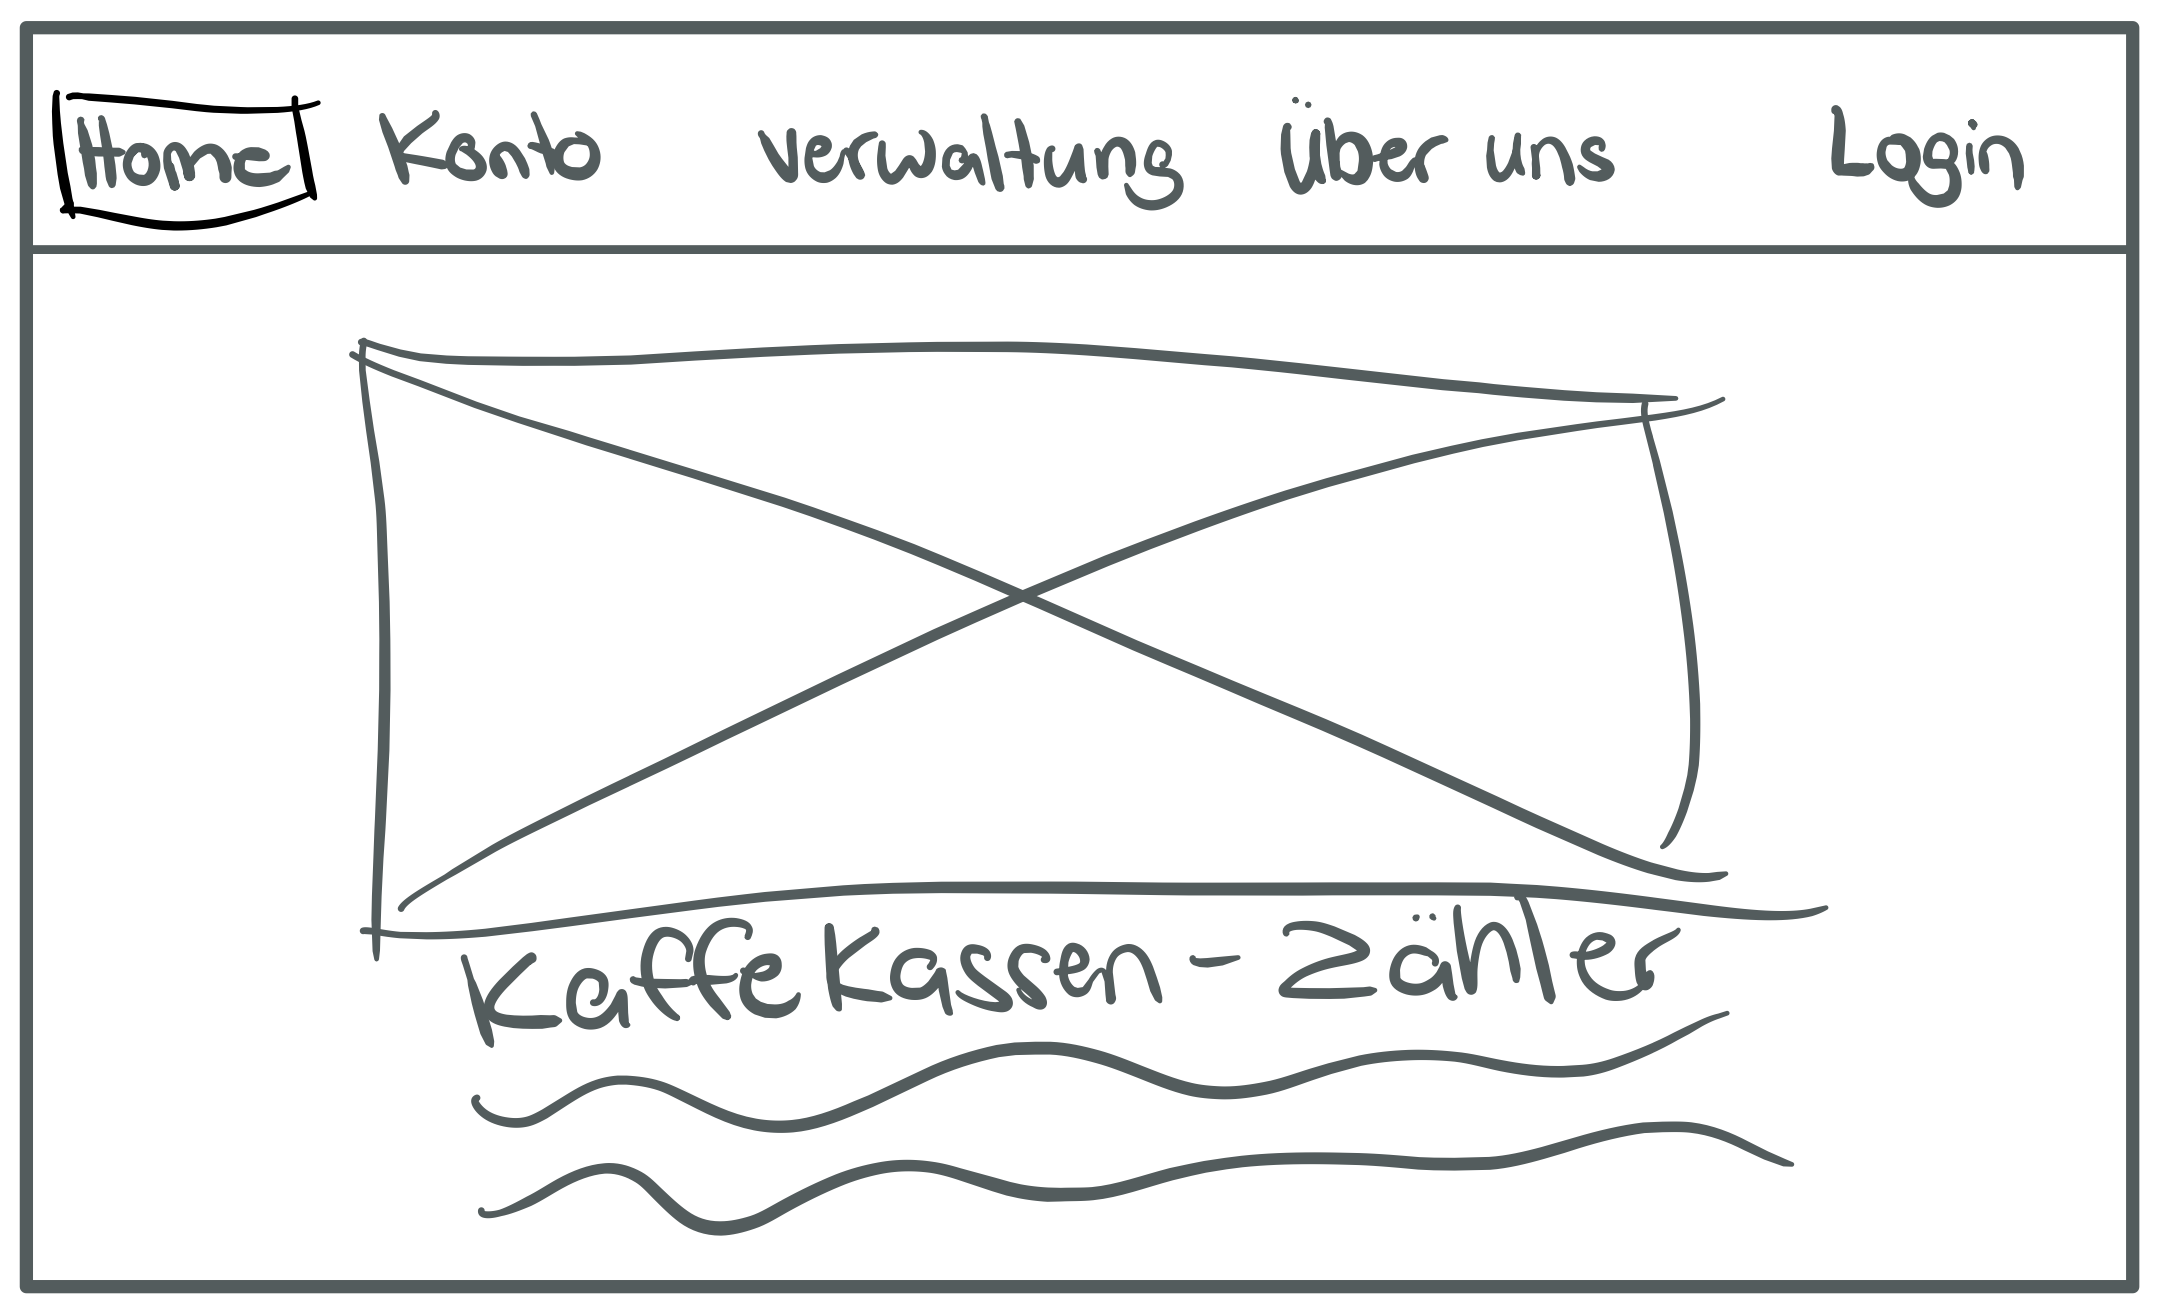 Home Konto Verwaltung Über uns Login
Kaffekassen - Zähler